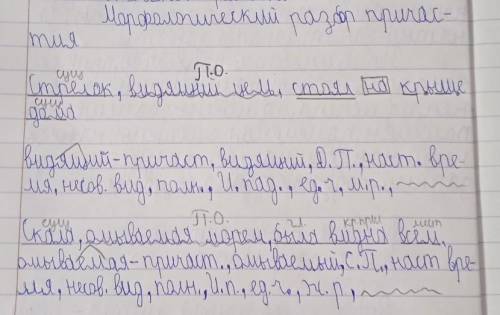 Морфологический разбор причас-
тия
сущ П.О.
Стрелок, видящий цель, стоял на крыше
сущ
дома
видящий-причаст, видящий, Д.П., наст. вре-
мя, несов. вид, полн., И. пад., ед. ч, м.р.,
сущ П.О. гл. кр.прил мест
Скала, омываемая морем, была видна всем.
омываемая-причаст., омываемый, С.П., наст вре-
мя, несов. вид, полн., И.п., ед.ч., ж.р.,